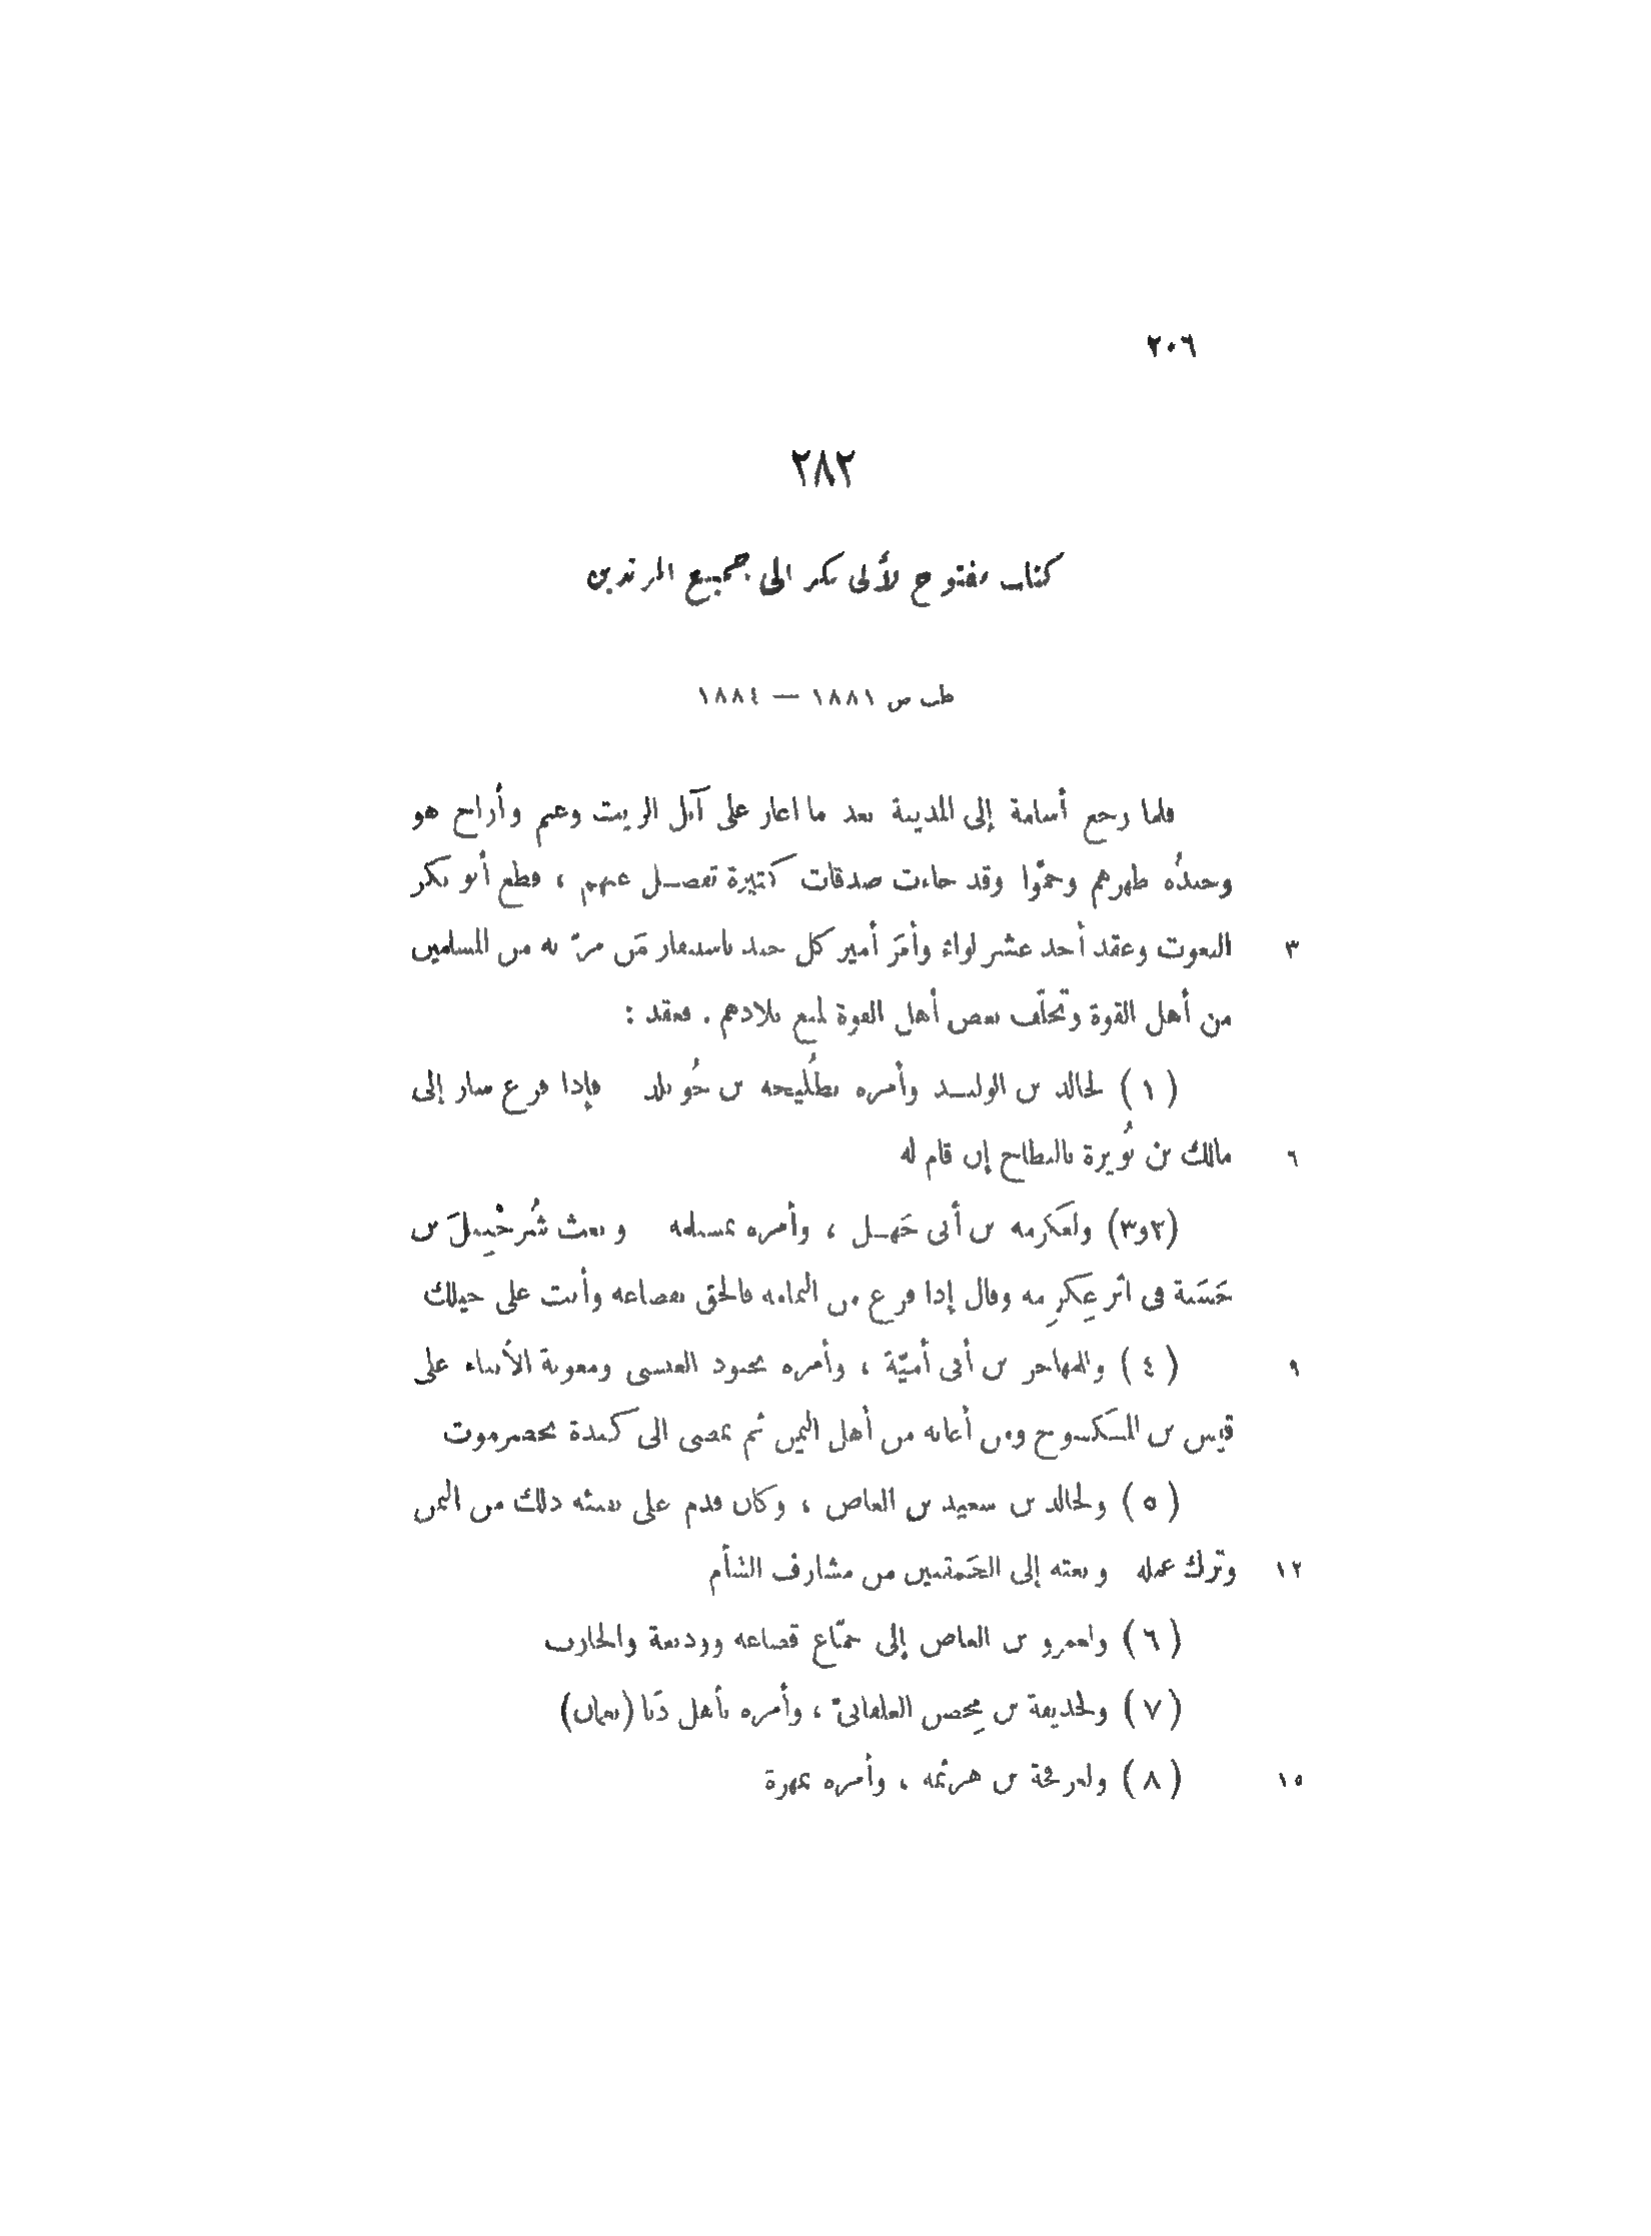 ٢٠٦
٢٨٢
كتاب مفتوح لأبى بكر الى جميع المرتدين
طب ص ١٨٨١ — ١٨٨٤
فلما رجع أسامة إلى المدينة بعد ما اغار على آبل الزيت وغنم وأراح هو
وجندُه ظهرهم وحمّوا وقد جاءت صدقات كثيرة تفضل عنهم ، قطع أبو بكر
٣ البعوث وعقد أحد عشر لواءً وأمَر أمير كل جند باستنفار مَن مرّ به من المسلمين
من أهل القوة وتخلّف بعض أهل القوة لمنع بلادهم . فعقد :
( ١ ) لخالد بن الوليد وأمره بطُليحه بن خُويلد فإذا فرغ سار إلى
٦ مالك بن نُويرة بالبطاح إن قام له
(٢و٣) ولعَكرمه بن أبى جَهل ، وأمره بمسيلمه وبعث شُرحْبِيلَ بن
حَسَنة فى اثر عِكرِمه وقال إذا فرغ من اليمامه فالحق بقضاعه وأنت على خيلك
٩ ( ٤ ) والمهاجر بن أبى أميّة ، وأمره بجنود العنسى ومعونة الأبناء على
قيس بن المكسوح ومن أعانه من أهل اليمن ثم يمضى الى كندة بحضرموت
( ٥ ) ولخالد بن سعيد بن العاص ، وكان قدم على بعثه ذلك من اليمن
١٢ وترك عمله وبعثه إلى الحَمقتين من مشارف الشأم
( ٦ ) ولعمرو بن العاص إلى جمّاع قضاعه ووديعة والحارث
( ٧ ) ولحذيفة بن مِحصن الغلفانىّ ، وأمره بأهل دَبا (بعمان)
١٥ ( ٨ ) ولعرفجة بن هرثمه ، وأمره بمهرة